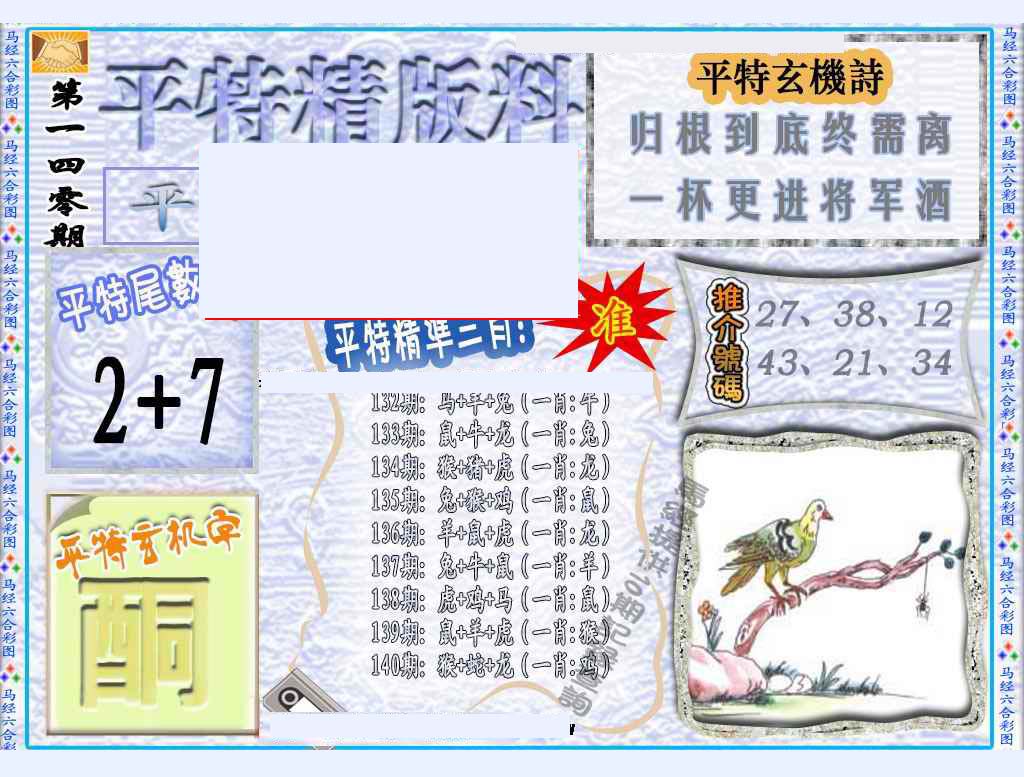 马经六合彩图
马经六合彩图
马经六合彩图
马经六合彩图
马经六合彩图
马经六合彩图
马经六合彩
第一四零期
平特精版料
平
平特玄機詩
归根到底终需离
一杯更进将军酒
平特尾數
2+7
平特精準三肖!
准
推介號碼
27、38、12
43、21、34
132期: 马+羊+兔(一肖:牛)
133期: 鼠+牛+龙(一肖:兔)
134期: 猴+猪+虎(一肖:龙)
135期: 兔+猴+鸡(一肖:鼠)
136期: 羊+鼠+虎(一肖:龙)
137期: 兔+牛+鼠(一肖:羊)
138期: 虎+鸡+马(一肖:鼠)
139期: 鼠+羊+虎(一肖:猴)
140期: 猴+蛇+龙(一肖:鸡)
平特玄机字
酮
马经六合彩图
马经六合彩图
马经六合彩图
马经六合彩图
马经六合彩图
马经六合彩图
马经六合彩图